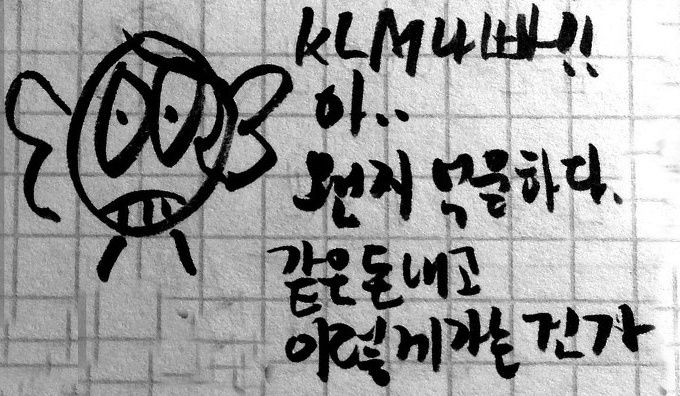 KLM나빠!!
아..
왠지 억울하다.
같은돈내고
이렇게가는건가